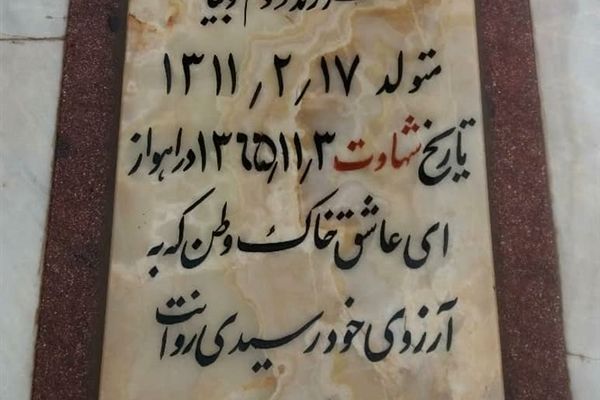 متولد ۱۷ ٫ ۲ ٫ ۱۳۱۱
تاریخ شهادت ۳ ٫ ۱۱ ٫ ۱۳۶۵ در اهواز
ای عاشق خاک وطن که به
آرزوی خود رسیدی روانت